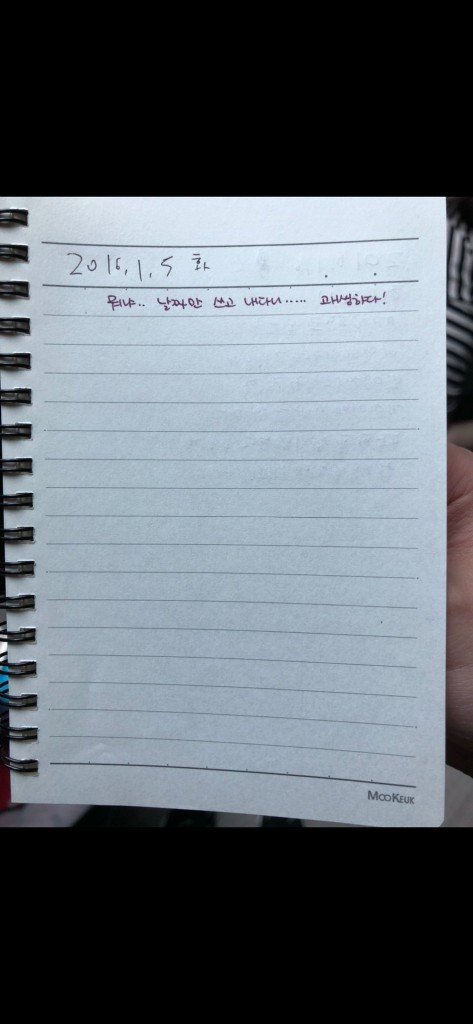 2016. 1. 5 화
뭐냐.. 날짜만 쓰고 내다니..... 괘씸하다!
MOOKEUK